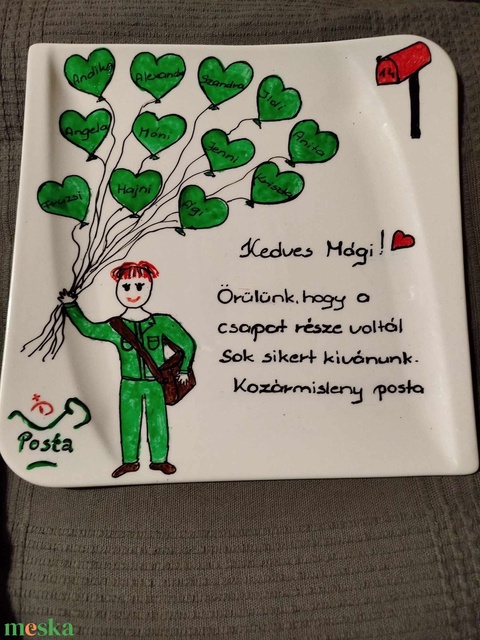 Andika
Alexandra
Szandra
Judi
Angela
Móni
Jenni
Anita
Fruzsi
Hajni
Ági
Kriszta
14
Kedves Mági!
Örülünk, hogy a
csapat része voltál
Sok sikert kivánunk.
Kozármisleny posta
Posta
meska